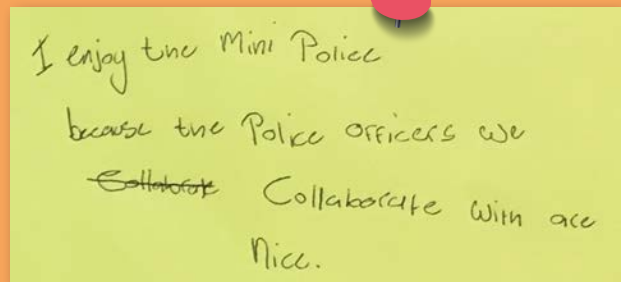 I enjoy the Mini Police
because the Police officers we
Collaborate Collaborate with are
Nice.